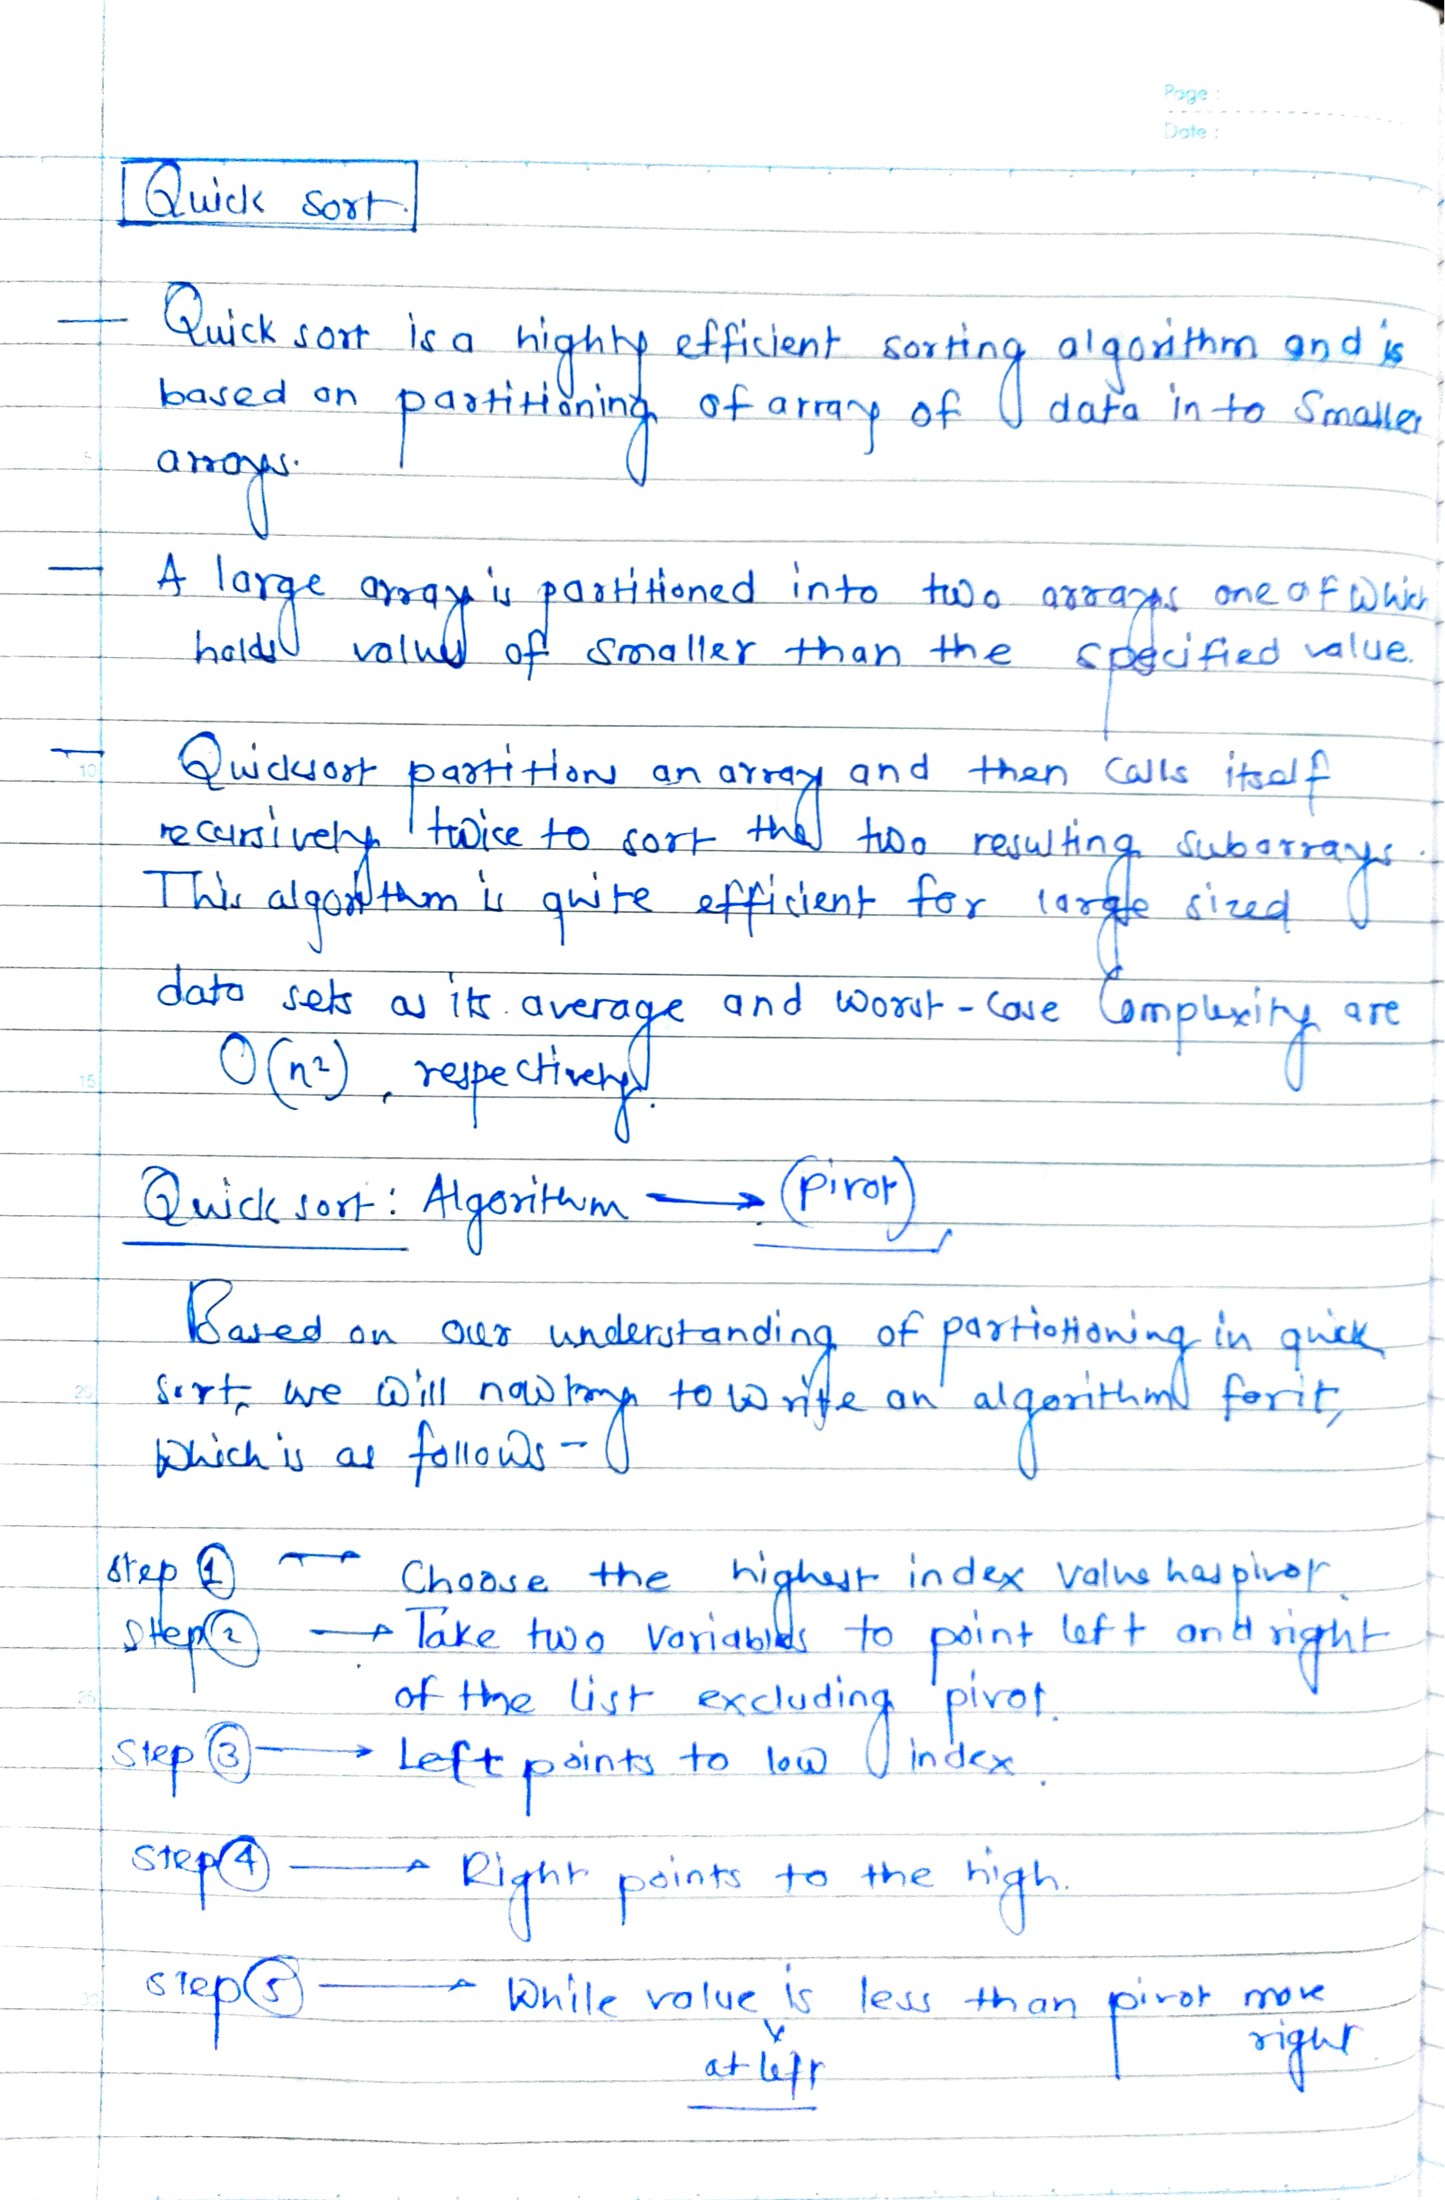 Page :
Date :
Quick sort.
— Quick sort is a highly efficient sorting algorithm and is
based on partitioning of array of data in to smaller
arrays.
— A large array is partitioned into two arrays one of which
holds values of smaller than the specified value.
— Quicksort partitions an array and then calls itself
recursively twice to sort the two resulting subarrays.
This algorithm is quite efficient for large sized
data sets as its average and worst-case Complexity are
O(n²), respectively.
Quick sort : Algorithm → (pivot)
Based on our understanding of partiotioning in quick
sort, we will now try to write an algorithm for it,
which is as follows -
Step 1 → Choose the highest index value has pivot.
Step 2 → Take two variables to point left and right
of the list excluding pivot.
Step 3 → Left points to low index.
Step 4 → Right points to the high.
Step 5 → While value is less than pivot move
right
at left
5
10
15
20
25
30